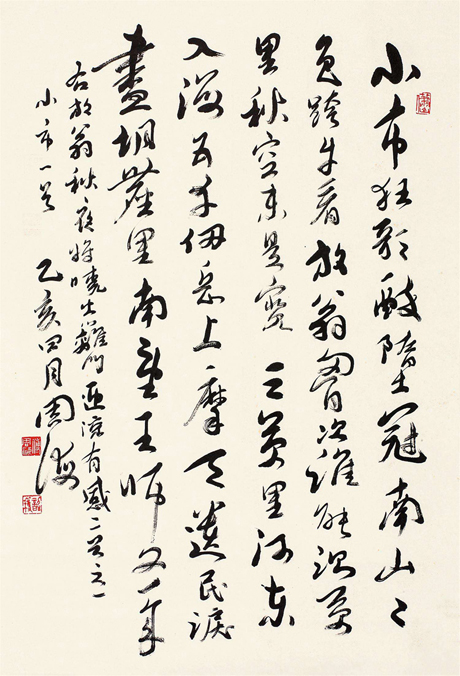 小市狂歌醉墮冠南山〻
色跨牛看放翁胸次誰能測萬
里秋空未是寬三萬里河東
入海五千仞岳上摩天遺民淚
盡胡塵里南望王師又一年
右放翁秋夜將曉出籬門迎涼有感二首之一
小市一首乙亥四月周